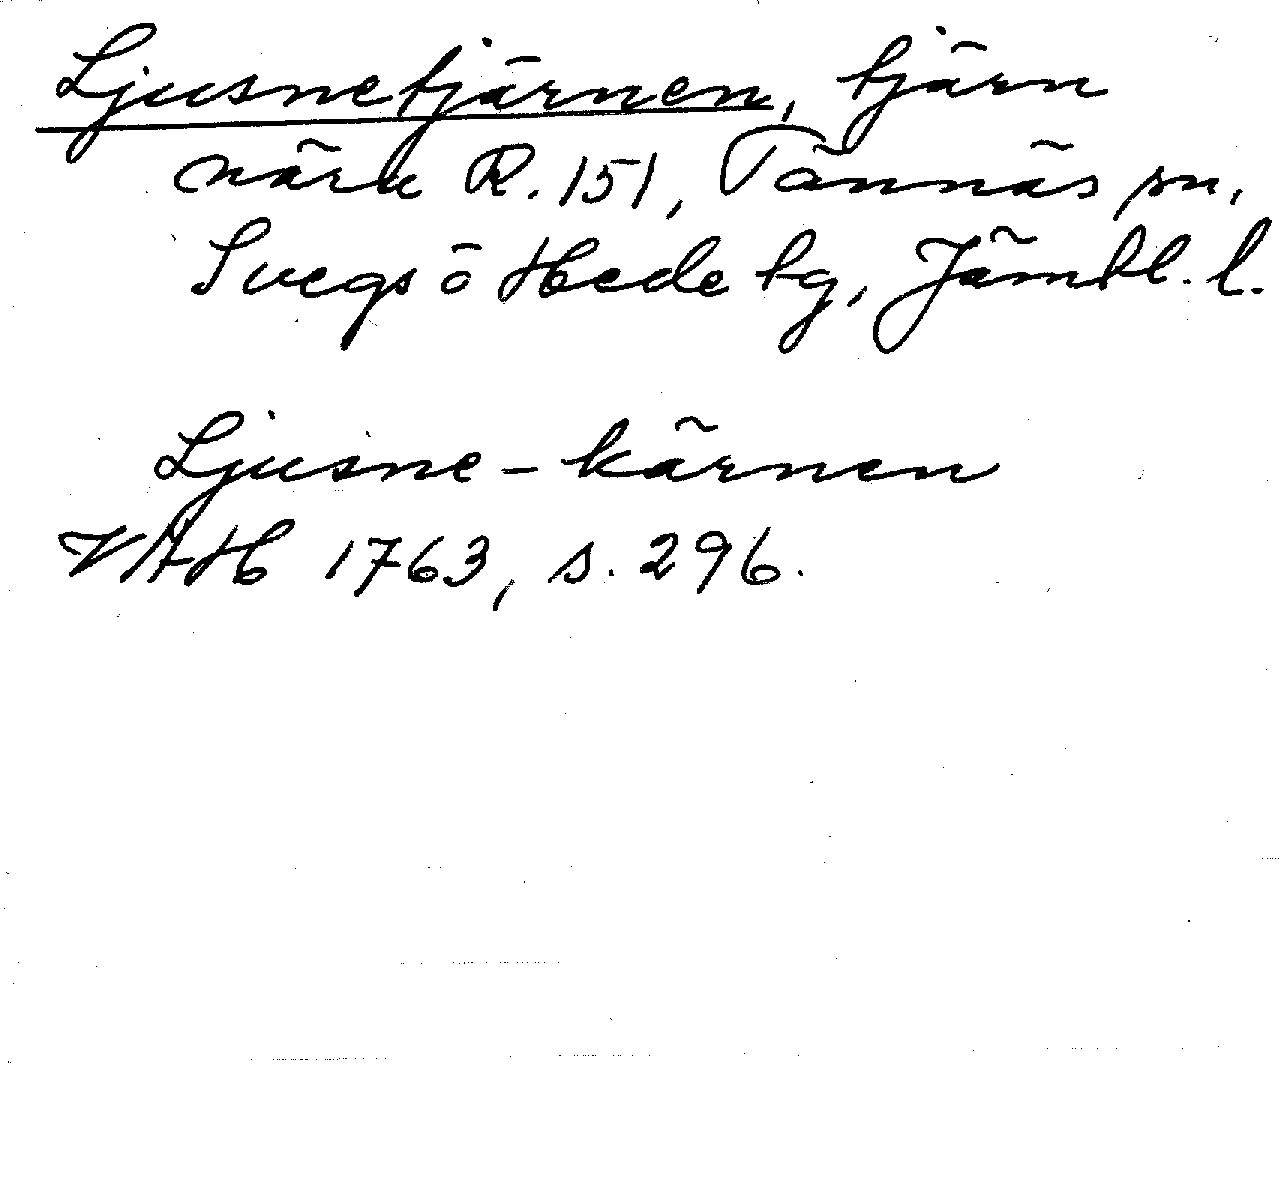 Ljusnetjärnen, tjärn
nära R. 151, Tännäs sn,
Svegs o Hede tg, Jämtl. l.
Ljusne-kärnen
VAH 1763, s. 296.